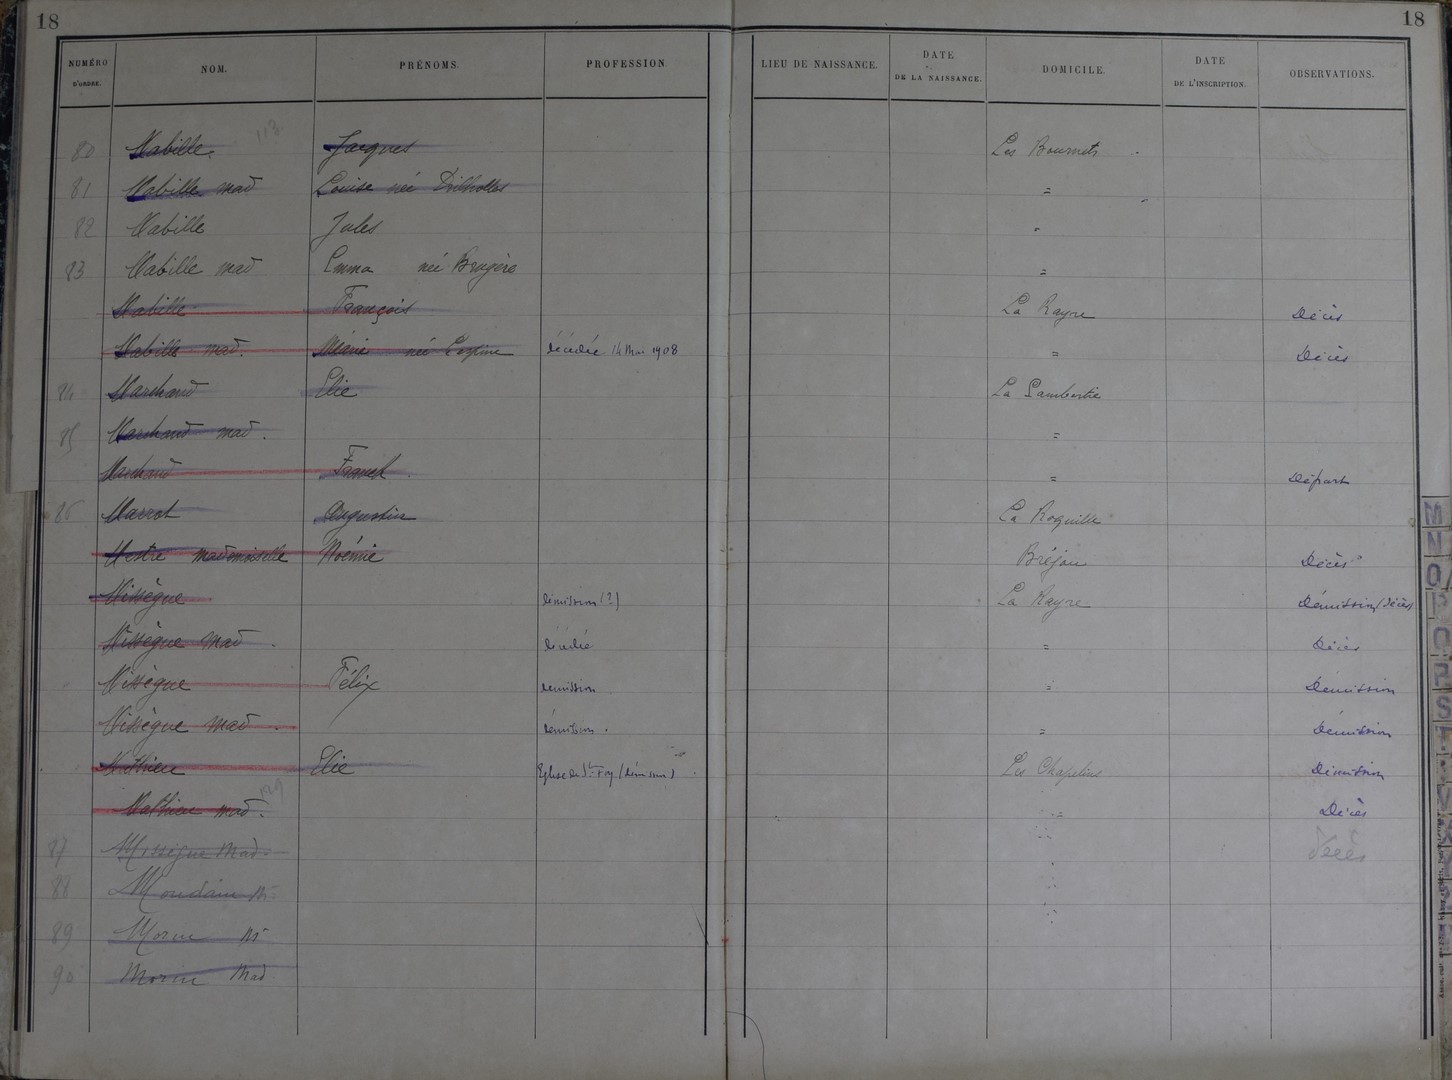 18 18
NUMÉRO D'ORDRE. NOM. PRÉNOMS. PROFESSION LIEU DE NAISSANCE. DATE DE LA NAISSANCE. DOMICILE. DATE DE L'INSCRIPTION. OBSERVATIONS.
113
80 Mabille Jacques Les Bournets
81 Mabille mad Louise née =
82 Mabille Jules "
83 Mabille mad Emma née Brugère =
Mabille François La Rayre Décès
Mabille mad. Marie née décédée 14 Mai 1908 = Décès
84 Marchand Elie La Lambertie
85 Marchand mad. =
Marchand Franck = Départ
86 Marrot Augustin La Roquille
Mestre mademoiselle Noémie Bréjou Décès
Missègue démission (?) La Rayre Démission (décès)
Missègue Mad décédée = Décès
Missègue Félix démission = Démission
Missègue Mad démission. = démission
Mathieu Elie Eglise de Ste Foy (démission) Les Chapelins Démission
Mathieu mad. = Décès
87 Missègue Mad. Décès
88 Mr
89 Morin Mr
90 Morin Mad
M
N
O
P
Q
R
S
T